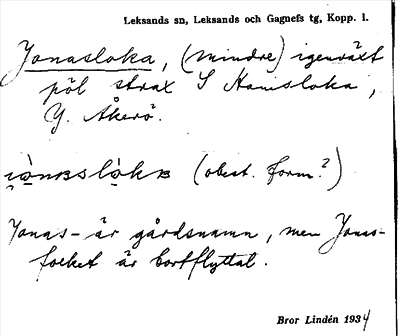 Leksands sn, Leksands och Gagnefs tg, Kopp. l.
Jonasloka, (mindre) igenväxt
pöl strax S Hamsloka,
Y. Åkerö.
(obest. form?)
Jonas- är gårdsnamn, men Jonas-
folket är bortflyttat.
Bror Lindén 1934